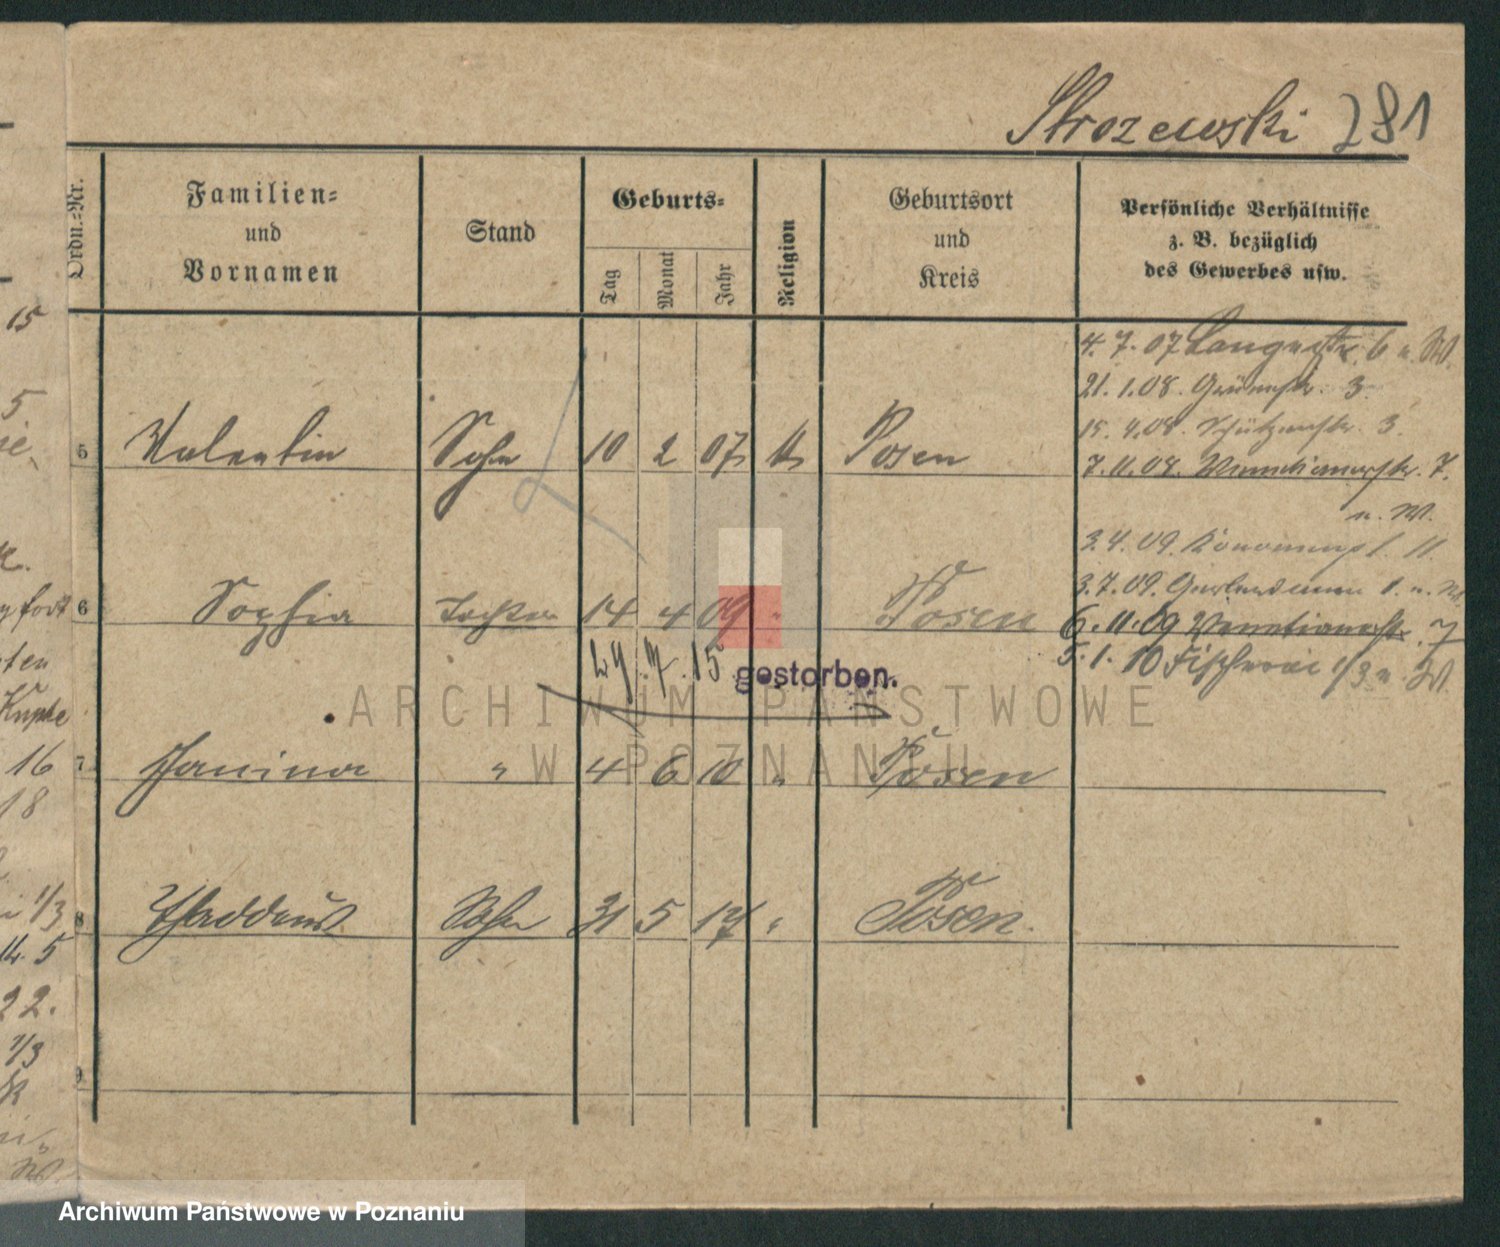 Strozewski 281
Ordn.=Nr.
Familien=
und
Vornamen
Stand
Geburts=
Tag
Monat
Jahr
Religion
Geburtsort
und
Kreis
Persönliche Verhältnisse
z. B. bezüglich
des Gewerbes usw.
4. 7. 07 Langestr. 6 u. W.
21. 1. 08. Grünestr. 3.
15. 4. 08. Schützenstr. 3.
5 Valentin Sohn 10 2 07 Posen
7. 11. 08. Venetianerstr. 7.
u. W.
3. 4. 09.
3. 7. 09.
6 Sophia Tochter 14 4 09 " Posen
6. 11. 09 Venetianerstr. 7
5. 1. 10 Fischerei 1/3 u. W.
29. 7. 15 gestorben.
7 Janina " 4 6 10 " Posen
8 Thaddeus Sohn 31 5 17 " Posen.
9
15
5
fort
ten
16
18
1/3
5
22.
1/3
W.
ARCHIWUM PAŃSTWOWE
W POZNANIU
Archiwum Państwowe w Poznaniu